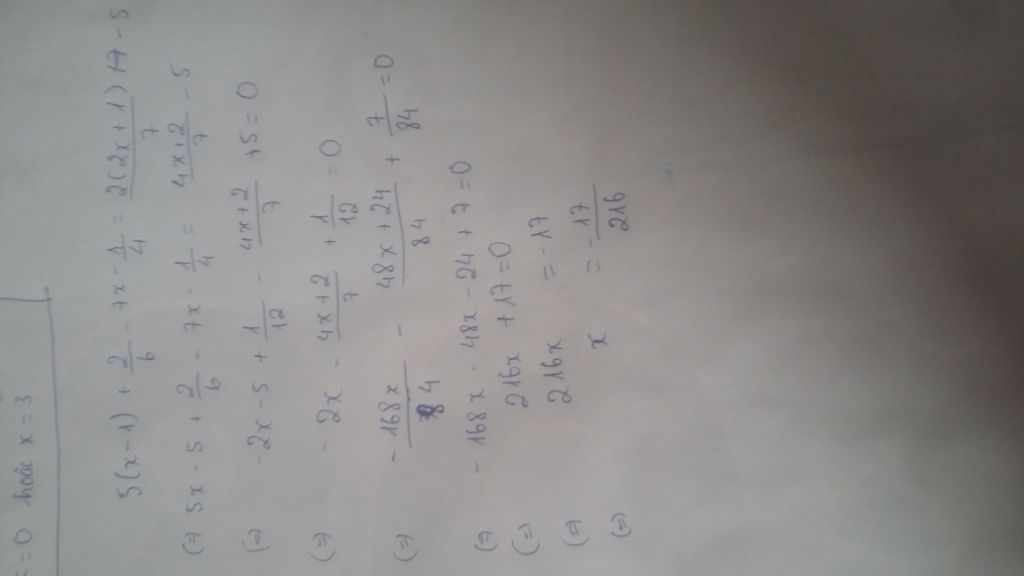 = 0 hoặc x = 3
5(x-1) + 2/6 - 7x - 1/4 = 2(2x+1)/7 - 5
(=) 5x - 5 + 2/6 - 7x - 1/4 = 4x+2/7 - 5
(=) -2x - 5 + 1/12 - 4x+2/7 + 5 = 0
(=) -2x - 4x+2/7 + 1/12 = 0
(=) -168x/84 - 48x+24/84 + 7/84 = 0
(=) -168x - 48x - 24 + 7 = 0
(=) 216x + 17 = 0
(=) 216x = -17
(=) x = -17/216